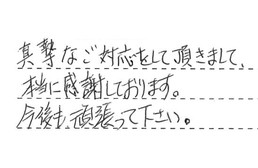 真摯なご対応をして頂きまして、
本当に感謝しております。
今後も、頑張って下さい。